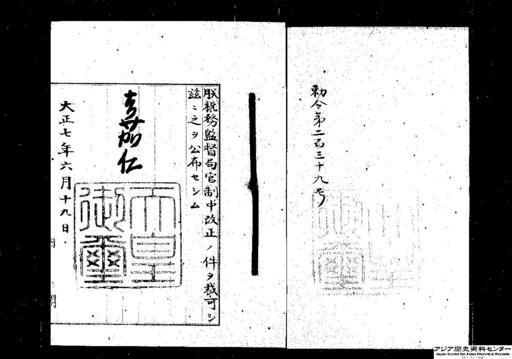 勅令第二百三十九号
朕税務監督局官制中改正ノ件ヲ裁可シ
茲ニ之ヲ公布セシム
嘉仁
天皇御璽
大正七年六月十九日
アジア歴史資料センター
Japan Center for Asian Historical Records